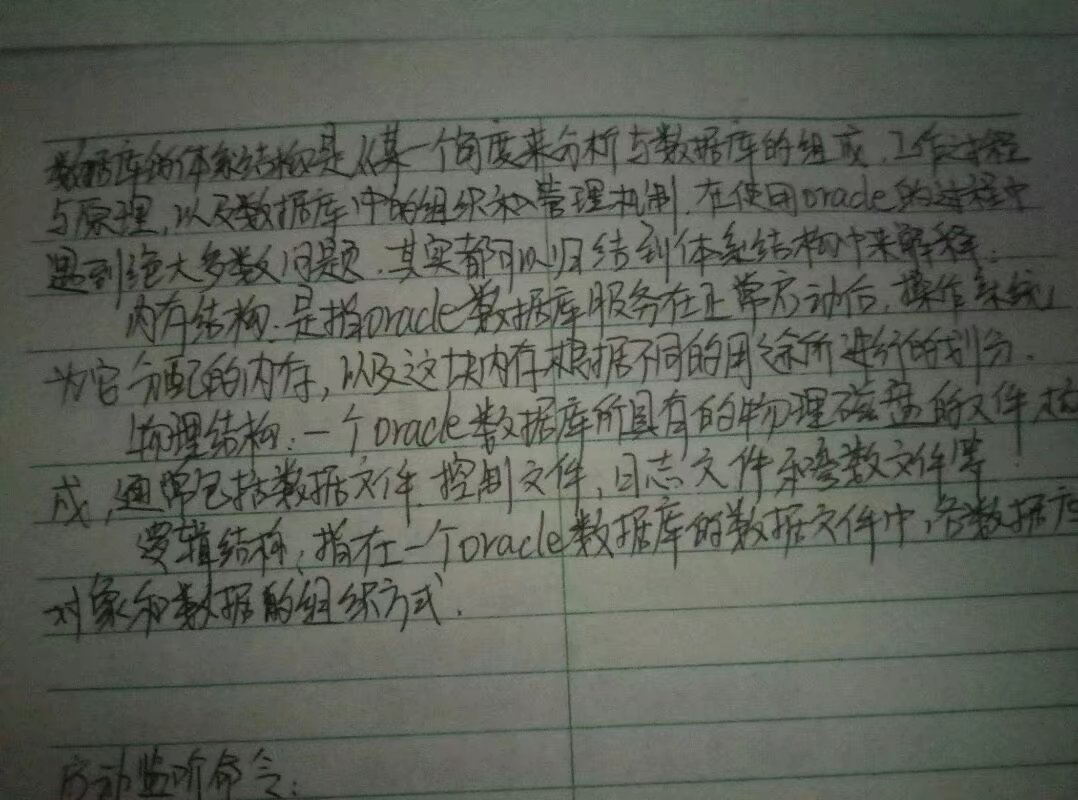 数据库的体系结构是从某一个角度来分析与数据库的组成、工作过程
与原理,以及数据库中的组织和管理机制,在使用oracle的过程中
遇到绝大多数问题,其实都可以归结到体系结构中来解释.
内存结构.是指oracle数据库服务在正常启动后,操作系统
为它分配的内存,以及这块内存根据不同的用途所进行的划分.
物理结构:一个oracle数据库所具有的物理磁盘的文件构
成,通常包括数据文件.控制文件,日志文件和参数文件等
逻辑结构,指在一个oracle数据库的数据文件中,各数据库
对象和数据的组织方式.
启动监听命令: